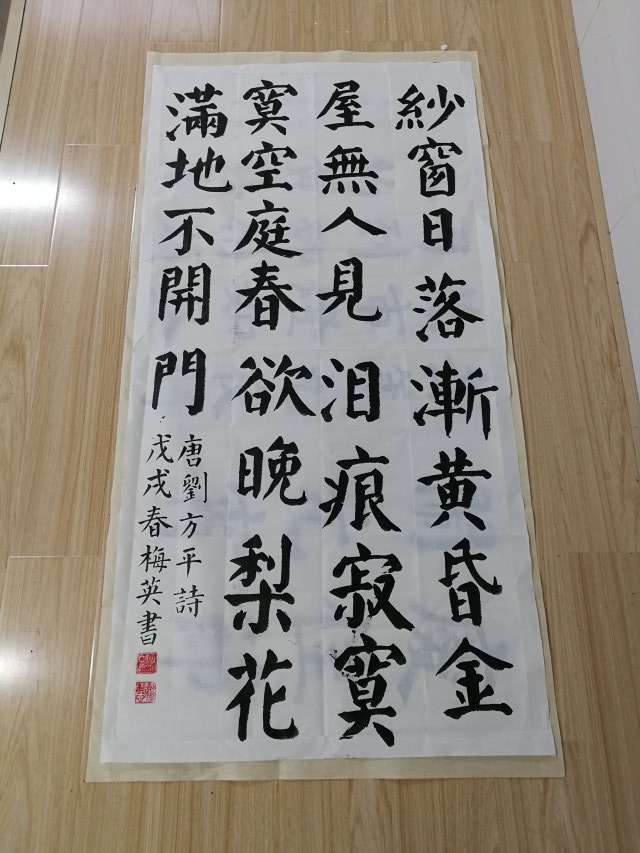 紗窗日落漸黄昏金
屋無人見泪痕寂寞
寞空庭春欲晚梨花
滿地不開門
唐劉方平詩
戊戌春梅英書